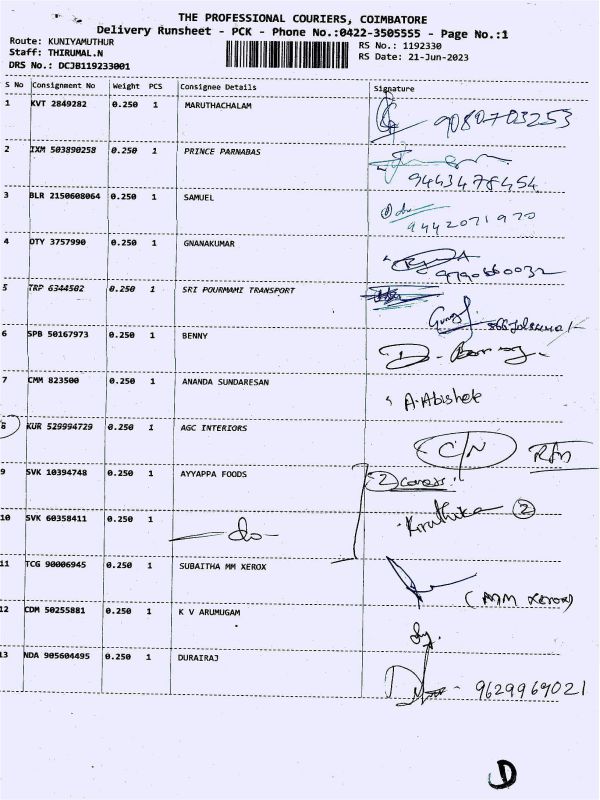 THE PROFESSIONAL COURIERS, COIMBATORE
Delivery Runsheet - PCK - Phone No.:0422-3505555 - Page No.:1
Route: KUNIYAMUTHUR RS No.: 1192330
Staff: THIRUMAL.N RS Date: 21-Jun-2023
DRS No.: DCJB119233001
S No Consignment No Weight PCS Consignee Details Signature
1 KVT 2849282 0.250 1 MARUTHACHALAM 9080703253
2 IXM 503890258 0.250 1 PRINCE PARNABAS
9443478454
3 BLR 2150608064 0.250 1 SAMUEL
9442071970
4 OTY 3757990 0.250 1 GNANAKUMAR
5 TRP 6344502 0.250 1 SRI POURMAMI TRANSPORT
6 SPB 50167973 0.250 1 BENNY
7 CMM 823500 0.250 1 ANANDA SUNDARESAN
A. Abishek
8 KUR 529994729 0.250 1 AGC INTERIORS
C/N
9 SVK 10394748 0.250 1 AYYAPPA FOODS
2
10 SVK 60358411 0.250 1
-do-
Kiruthika 2
11 TCG 90006945 0.250 1 SUBAITHA MM XEROX
(MM XEROX)
12 CDM 50255881 0.250 1 K V ARUMUGAM
13 NDA 905604495 0.250 1 DURAIRAJ
9629969021
D